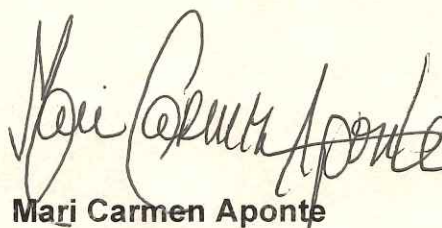 Mari Carmen Aponte
Mari Carmen Aponte